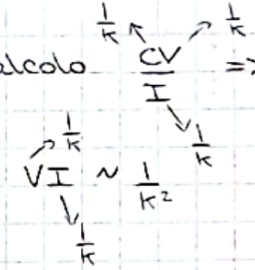 1/k 1/k
alcolo CV/I =>
1/k
1/k
VI ~ 1/k²
1/k